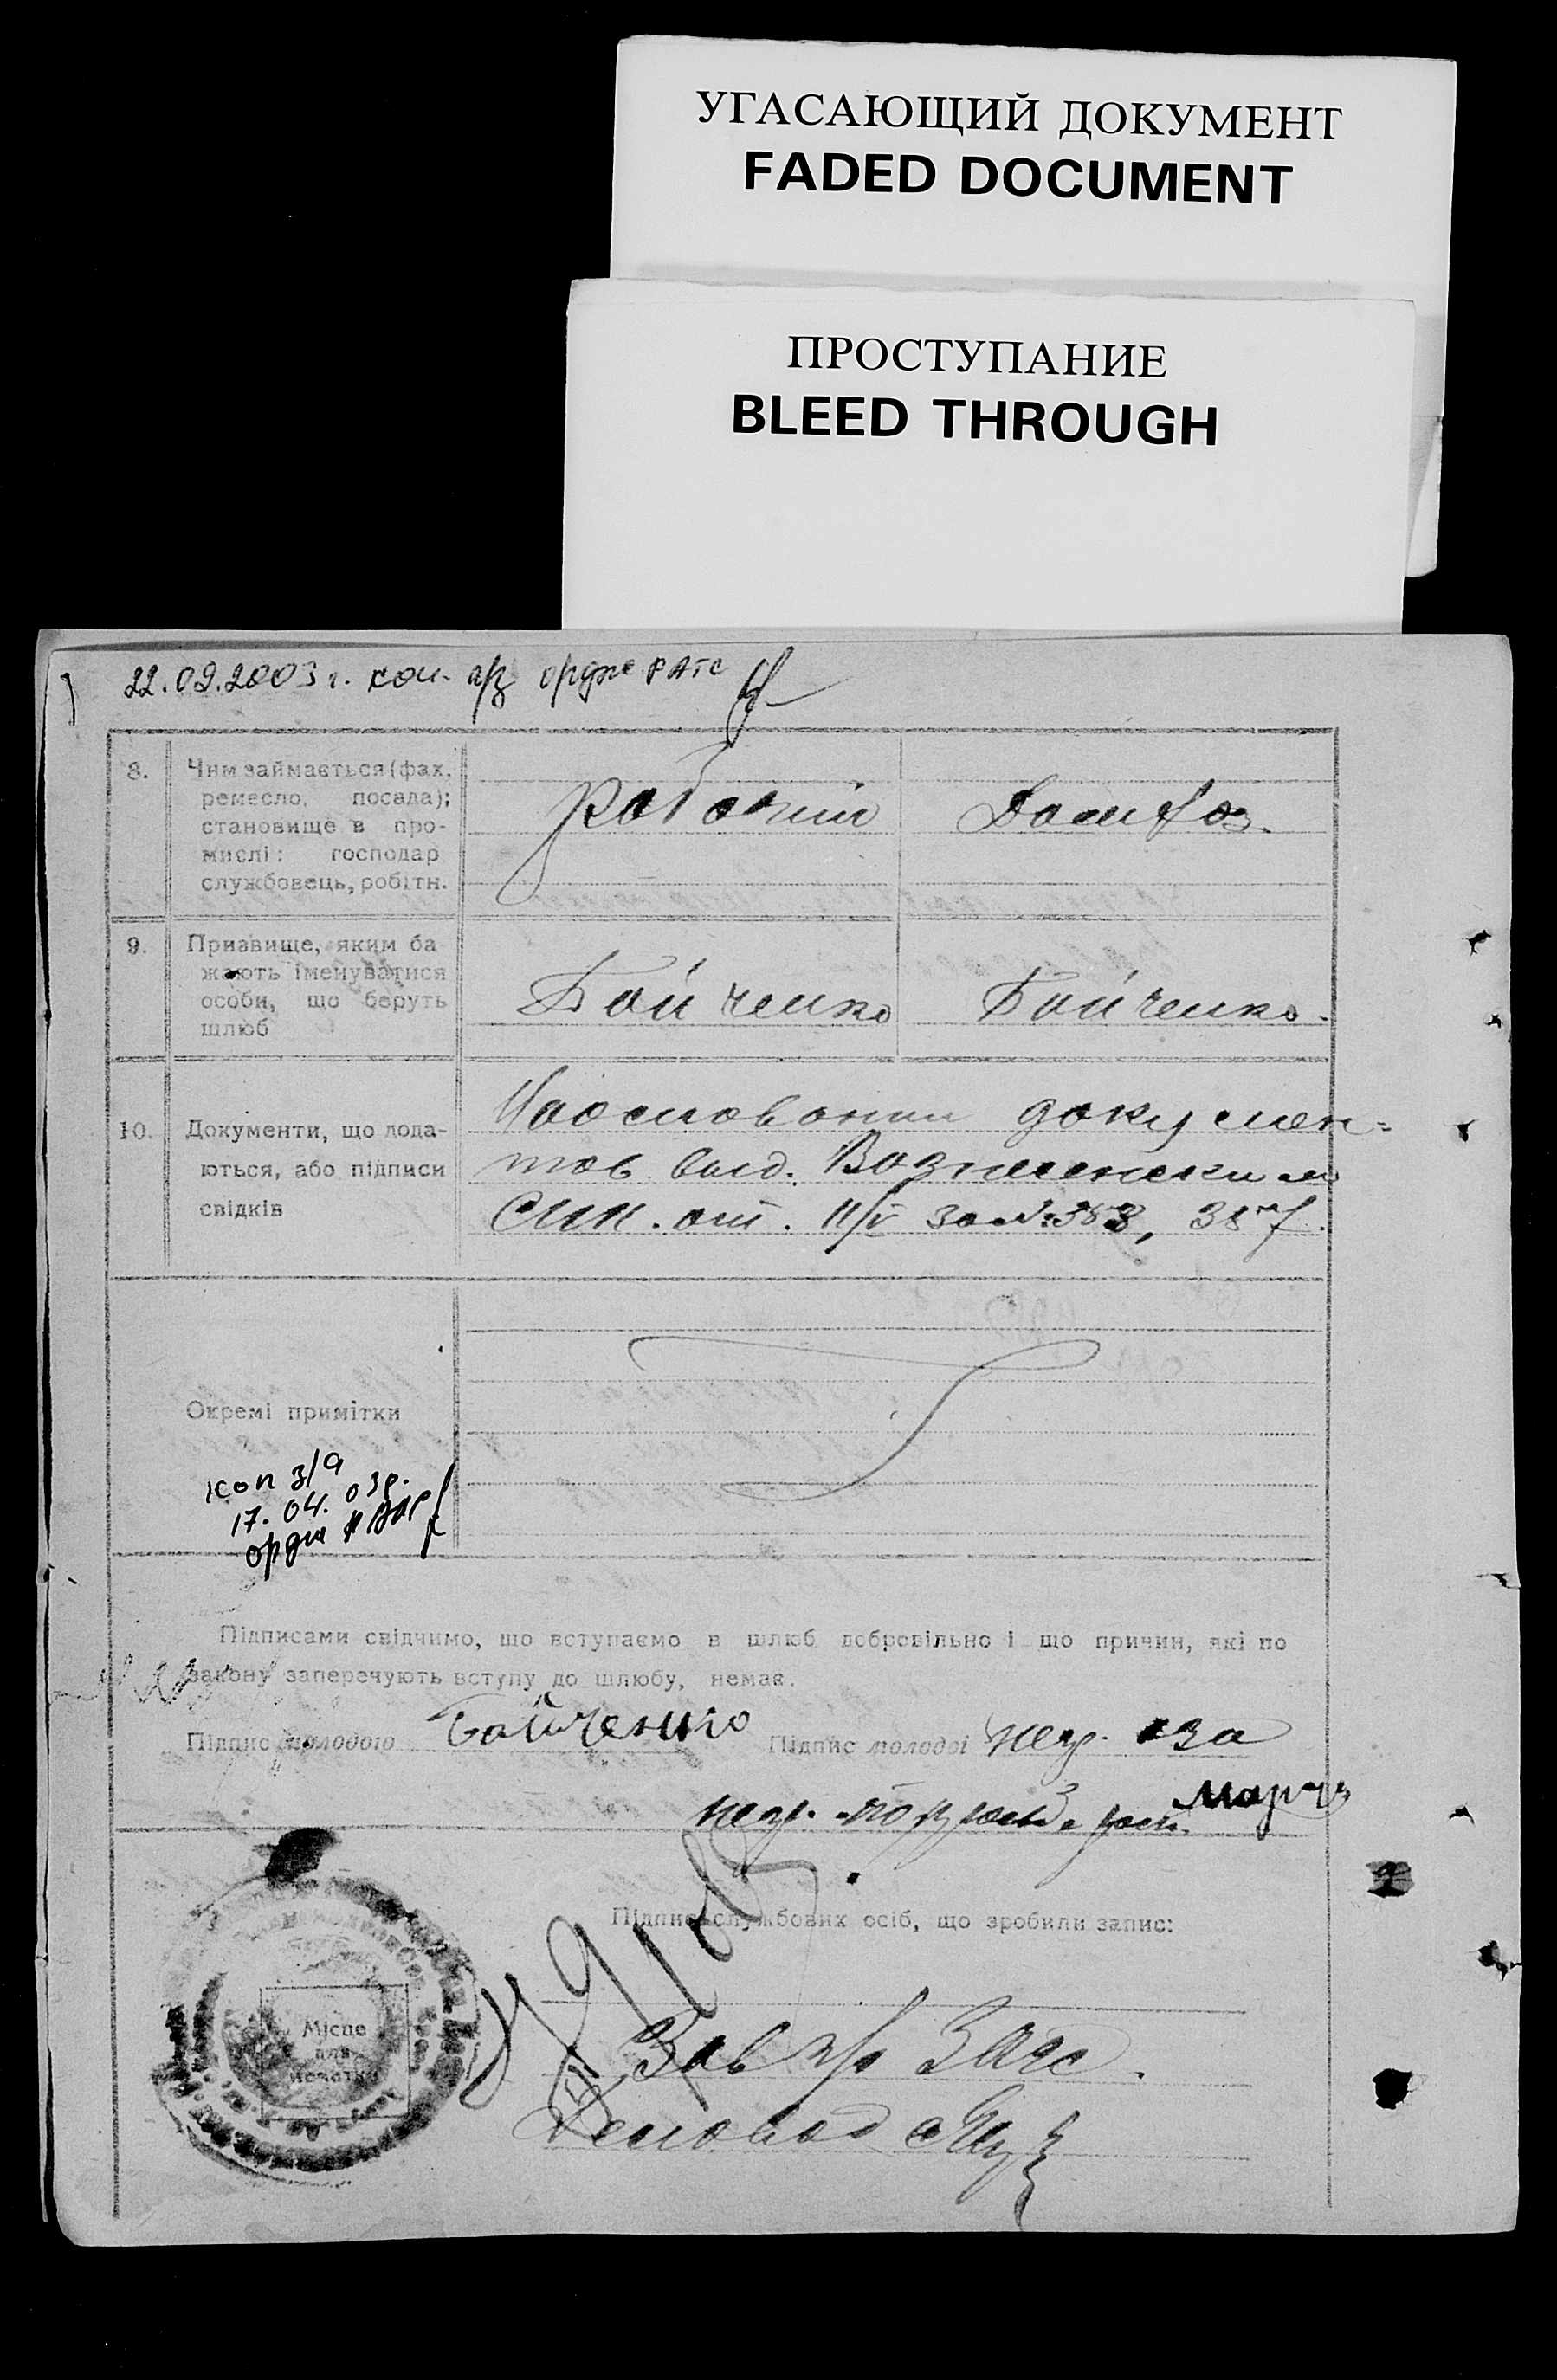 УГАСАЮЩИЙ ДОКУМЕНТ
FADED DOCUMENT
ПРОСТУПАНИЕ
BLEED THROUGH
22.09.2003 г. коп. а/з ордже РАГС
8. Чим займається (фах, ремесло, посада); становище в про-
мислі: господар
службовець, робітн.
рабочий Домхоз.
9. Призвище, яким ба
жають іменуватися
особи, що беруть
шлюб
Бойченко Бойченко.
10. Документи, що пода-
ються, або підписи
свідків
На основании докумен=
тов выд. Вознесенским
С/п. от. 11/V за №: 383, 387.
Окремі примітки
коп з/а
17. 04. 03р.
Підписами свідчимо, що вступаємо в шлюб добровільно і що причин, які по
закону заперечують вступу до шлюбу, немає.
Підпис молодого Бойченко Підпис молодої негр. за
негр.
Підпис службових осіб, що зробили запис:
Місце
для
печатки
Зав п/о Загс.
Деловод